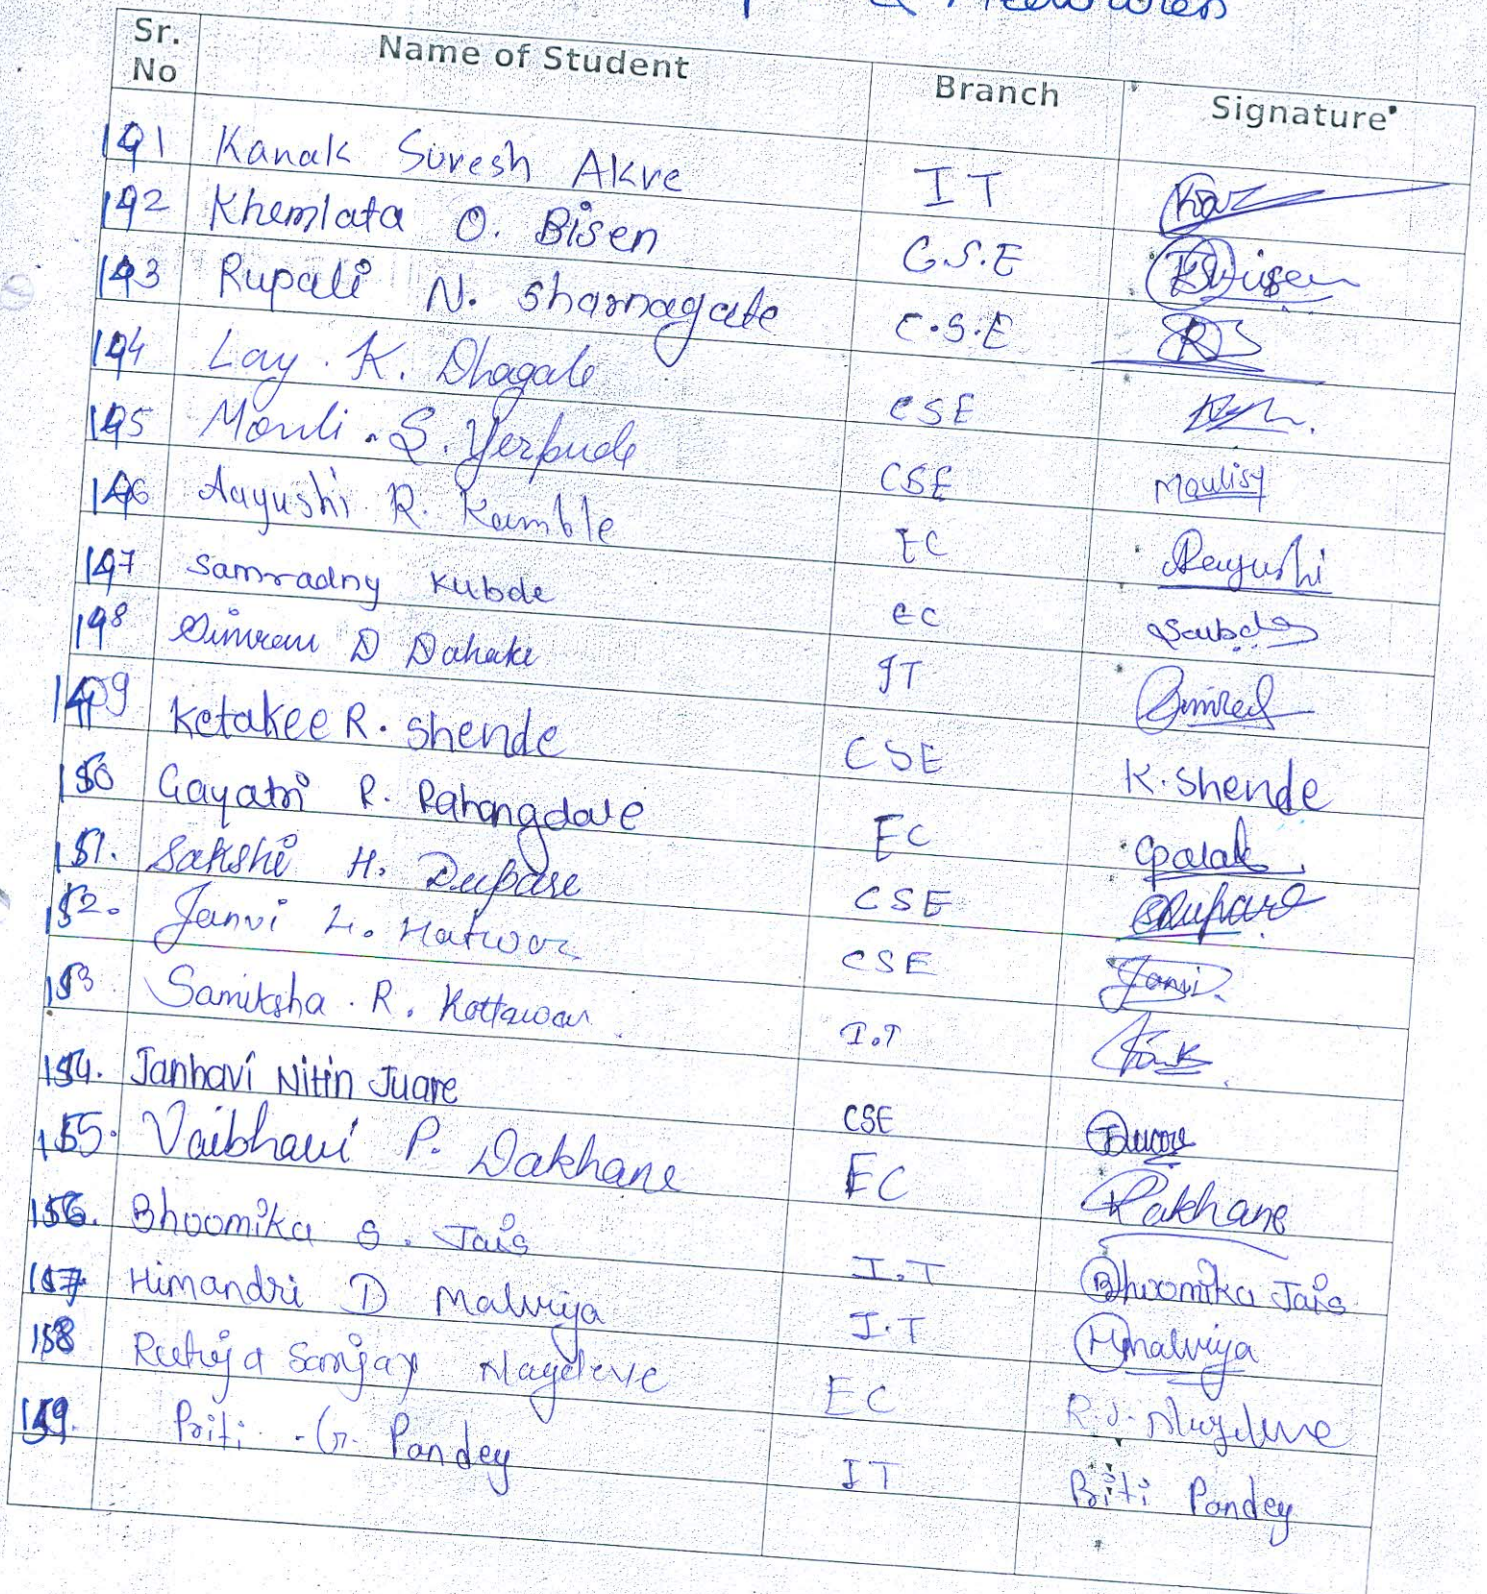 Sr. No Name of Student Branch Signature
141 Kanak Suresh Akre IT
142 Khemlata O. Bisen C.S.E
143 Rupali N. Sharnagate C.S.E
144 Lay. K. Dhagale CSE
145 Mouli. S. Yerpude CSE Moulisy
146 Aayushi R. Kamble EC Aayushi
147 Samradny Kubde EC
148 Simran D Dahake IT
149 Ketakee R. Shende CSE K. Shende
150 Gayatri R. Rahangdale EC
151. Sakshi H. Dupare CSE
152. Janvi H. Hatwar CSE Janvi
153 Samiksha. R. Kottawar I.T
154. Janhavi Nitin Juare CSE
155. Vaibhavi P. Dakhane EC Dakhane
156. Bhoomika S. Jais I.T Bhoomika Jais
157 Himandri D Malviya I.T HMalviya
158 Rutuja Sanjay Nagdeve EC R.S. Nagdeve
159. Priti. G. Pandey IT Priti Pandey